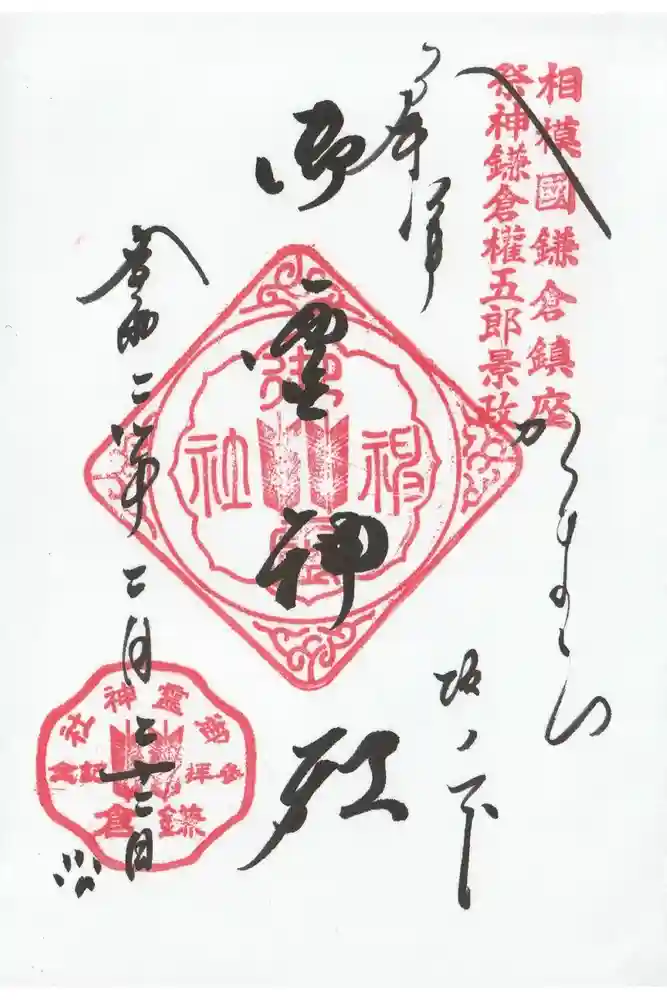 相模國鎌倉鎮座
祭神鎌倉權五郎景政
奉拝
坂ノ下
御霊神社
令和二年二月二十二日
御靈神社
参拝記念
鎌倉